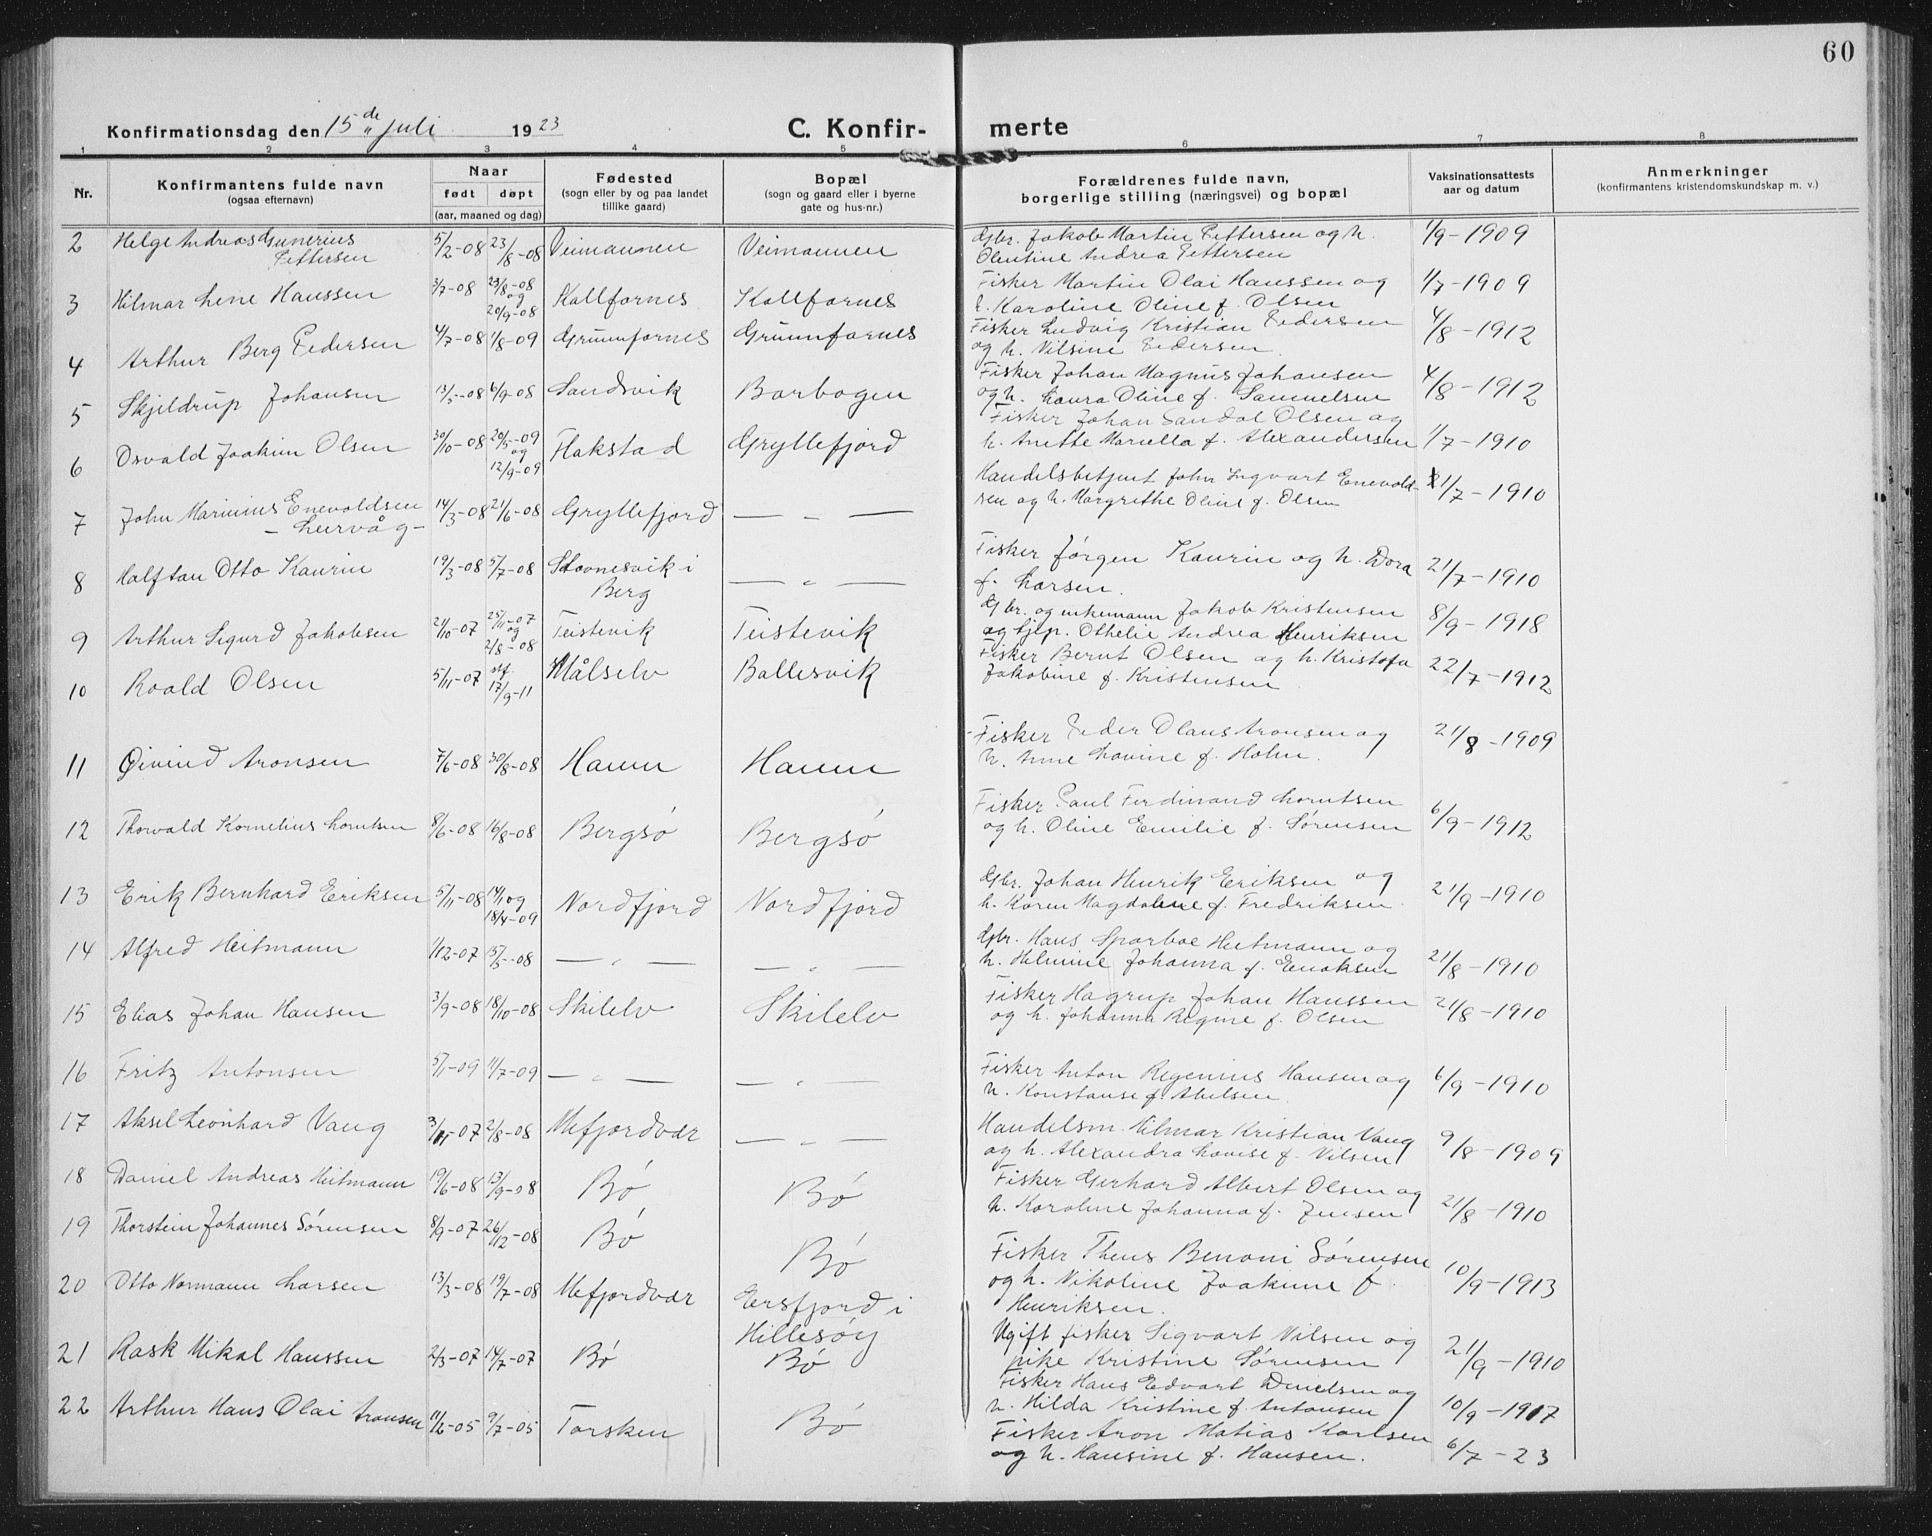 60
Konfirmationsdag den 15de juli 1923
C. Konfir-merte
1 2 3 4 5 6 7 8
Nr.
Konfirmantens fulde navn
(ogsaa efternavn)
Naar
født døpt
(aar, maaned og dag)
Fødested
(sogn eller by og paa landet
tillike gaard)
Bopæl
(sogn og gaard eller i byerne
gate og hus-nr.)
Forældrenes fulde navn,
borgerlige stilling (næringsvei) og bopæl
Vaksinationsattests
aar og datum
Anmerkninger
(konfirmantens kristendomskundskap m. v.)
2 Helge Andreas Gunerius Pettersen 5/2-08 23/8-08 Veimannen Veimannen Gbr. Jakob Martin Pettersen og h. Olentine Andrea Pettersen 1/9-1909
3 Hilmar Lene Hanssen 3/7-08 23/8-08 og 20/9-08 Kallfarnes Kallfarnes Fisker Martin Olai Hanssen og h. Karoline Oline f. Olsen 1/7-1909
4 Arthur Berg Pedersen 4/7-08 1/8-09 Grunnfarnes Grunnfarnes Fisker Ludvig Kristian Pedersen og h. Nilsine Pedersen. 4/8-1912
5 Skjeldrup Johansen 13/5-08 6/9-08 Sandsvik Barbogen Fisker Johan Magnus Johansen og h. Laura Oline f. Samuelsen 4/8-1912
6 Osvald Joakim Olsen 30/10-08 20/5-09 og 12/9-09 Flakstad Gryllefjord Fisker Johan Sandal Olsen og h. Anette Mariella f. Alexandersen 1/7-1910
7 John Marinius Enevoldsen - Lurvåg - 14/3-08 21/6-08 Gryllefjord — „ — Handelsbetjent John Sigvart Enevoldsen og h. Margrethe Oline f. Olsen 21/7-1910
8 Halftan Otto Kaurin 19/3-08 5/7-08 Skovnesvik i Berg — „ — Fisker Jørgen Kaurin og h. Dora f. Larsen. 21/7-1910
9 Arthur Sigurd Jakobsen 21/10-07 25/11-07 og 2/8-08 Teistevik Teistevik Gbr. og enkemann Jakob Kristensen og tjp. Othelie Andrea Henriksen 8/9-1918
10 Roald Olsen 5/11-07 17/9-11 Målselv Ballesvik Fisker Bernt Olsen og h. Kristofa Jakobine f. Kristensen 22/7-1912
11 Øivind Aronsen 7/6-08 30/8-08 Hamn Hamn Fisker Peder Olaus Aronsen og h. Anne Lovine f. Holm. 21/8-1909
12 Thorvald Kornelius Lorntsen 8/6-08 16/8-08 Bergsø Bergsø Fisker Paul Ferdinand Lorntsen og h. Oline Emilie f. Sørensen 6/9-1912
13 Erik Bernhard Eriksen 5/11-08 14/11 og 18/4-09 Nordfjord Nordfjord Gbr. Johan Henrik Eriksen og h. Karen Magdalene f. Fredriksen. 21/9-1910
14 Alfred Heitmann 1/12-07 15/5-08 — „ — — „ — Gbr. Hans Sparboe Heitmann og h. Helmine Johanna f. Enoksen 21/8-1910
15 Elias Johan Hansen 3/9-08 18/10-08 Skilelv Skilelv Fisker Hagrup Johan Hanssen og h. Johanna Regine f. Olsen 21/8-1910
16 Fritz Antonsen 5/1-09 11/7-09 — „ — — „ — Fisker Anton Regenius Hansen og h. Konstanse f. Abelsen. 6/9-1910
17 Aksel Leonhard Vang 3/11-07 2/8-08 Mefjordvær — „ — Handelsm. Hilmar Kristian Vang og h. Alexandra Lovise f. Nilsen 9/8-1909
18 Daniel Andreas Heitmann 19/6-08 13/9-08 Bø Bø Fisker Gerhard Albert Olsen og h. Karoline Johanna f. Jensen 21/8-1910
19 Thorstein Johannes Sørensen 8/9-07 26/12-08 Bø Bø Fisker Theus Benoni Sørensen og h. Nikoline Joakime f. Henriksen. 10/9-1913
20 Otto Normann Larsen 13/3-08 19/7-08 Mefjordvær Ersfjord i Hillesøy Ugift fisker Sigvart Nilsen og pike Kristine Sørensen 21/9-1910
21 Rask Mikal Hanssen 2/3-07 14/7-07 Bø Bø Fisker Hans Edvart Danielsen og h. Hilda Kristine f. Antonsen 10/9-1917
22 Arthur Hans Olai Aronsen 11/2-05 9/7-05 Torsken Bø Fisker Aron Matias Karlsen og h. Hansine f. Hansen. 6/7-23